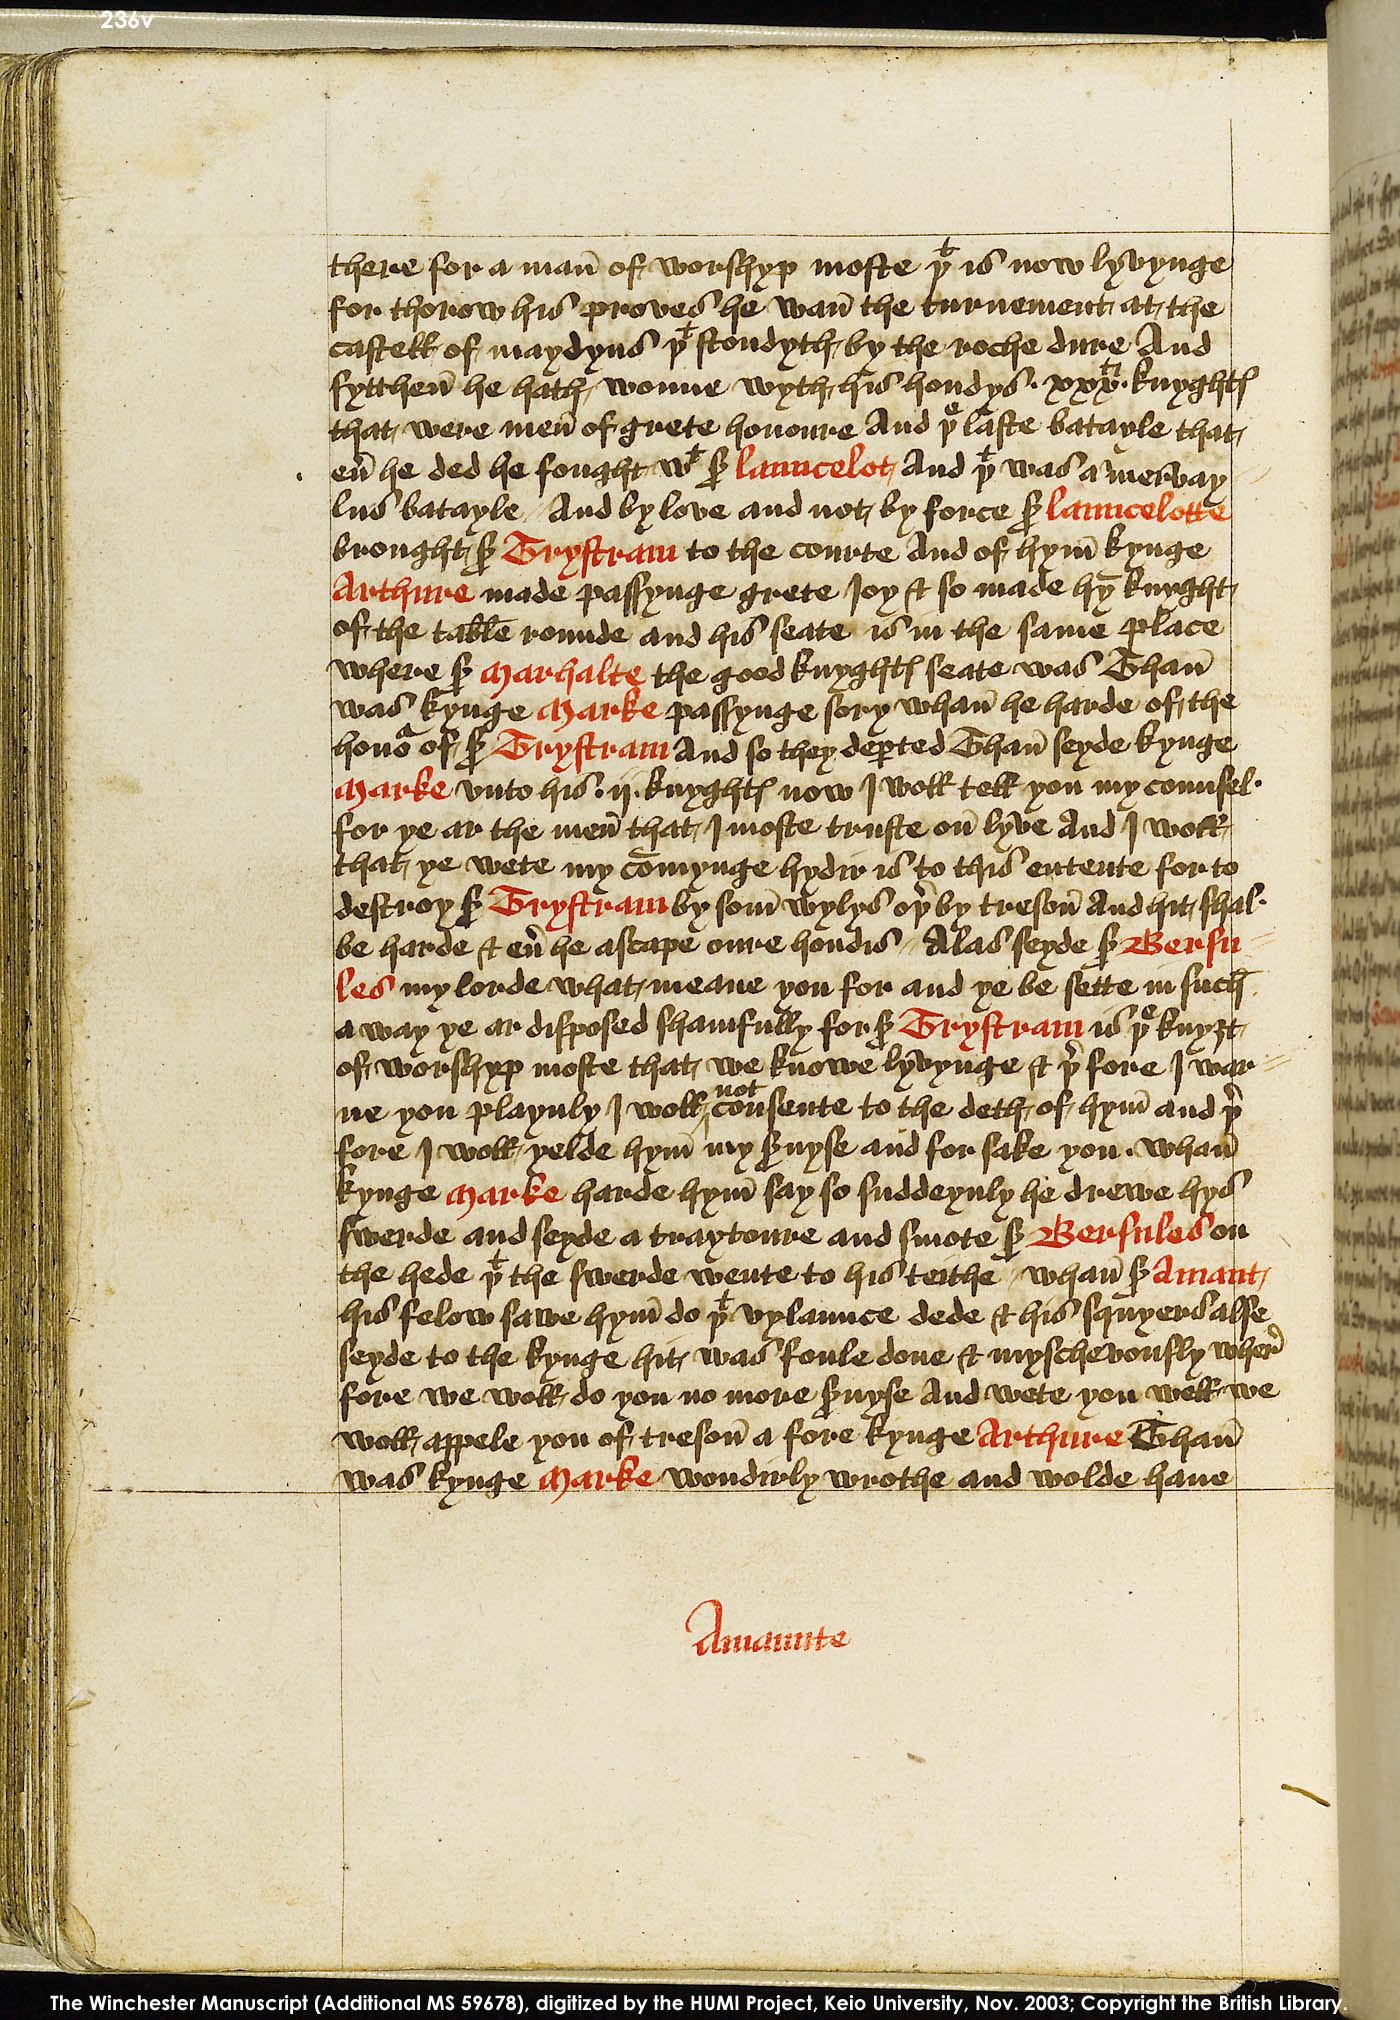 236v
there for a man̄ of worshyp moste þᵗ is now lyvynge
for thorow his proves he wan̄ the turnement at the
castell of maydyns þᵗ stondyth by the roche dure And
sytthen̄ he hath wonne wyth his hondys · xxxᵗⁱ · knyghtꝭ
that were men̄ of grete honoure And þᵉ laste batayle that
eu̾ he ded he fought wᵗ sꝛ̄ launcelot And þᵗ was a mervay
lus batayle // And by love and not by force sꝛ̄ launcelotte
brought sꝛ̄ Trystram to the courte And of hym̄ kynge
Arthure made passynge grete Joy & so made hȳ knyght
of the table rounde and his seate is in the same place
where sꝛ̄ Marhalte the good knyghtꝭ seate was Than̄
was kynge Marke passynge sory whan̄ he harde of the
honoᵃ of sꝛ̄ Trystram And so they dep̄ted Than̄ seyde kynge
Marke vnto his · ij · knyghtꝭ now I woll tell you my counsel ·
for ye ar the men̄ that I moste truste on̄ lyve And I woll
that ye wete my cōmynge hydir is to this entente for to
destroy sꝛ̄ Trystram by som̄ wylys oþ̾ by treson̄ And hit shal ·
be harde & eu̾ he ascape oure hondis // Alas seyde sꝛ̄ Bersu =
les my lorde what meane you for and ye be sette in such
a way ye ar disposed shamfully for sꝛ̄ Trystram is þᵉ knyȝt
of worshyp moste that we knowe lyvynge & þ̾ fore I war =
ne you playnly I woll not consente to the deth of hym̄ and þ̾
fore I woll yelde hym̄ my s̾uyse and for sake you · whan̄
kynge Marke harde hym̄ say so suddeynly he drewe hys
swerde and seyde a traytoure and smote sꝛ̄ Bersules on
the hede þᵗ the swerde wente to his teithe // whan̄ sꝛ̄ Amant
his felow sawe hym̄ do þᵗ vylaunce dede & his squyers alse
seyde to the kynge hit was foule done & myschevously wher̾
fore we woll do you no more s̾uyse And wete you well we
woll appele you of treson̄ a fore kynge Arthure Than̄
was kynge Marke wondirly wrothe and wolde haue
Amaunte
The Winchester Manuscript (Additional MS 59678), digitized by the HUMI Project, Keio University, Nov. 2003; Copyright the British Library.